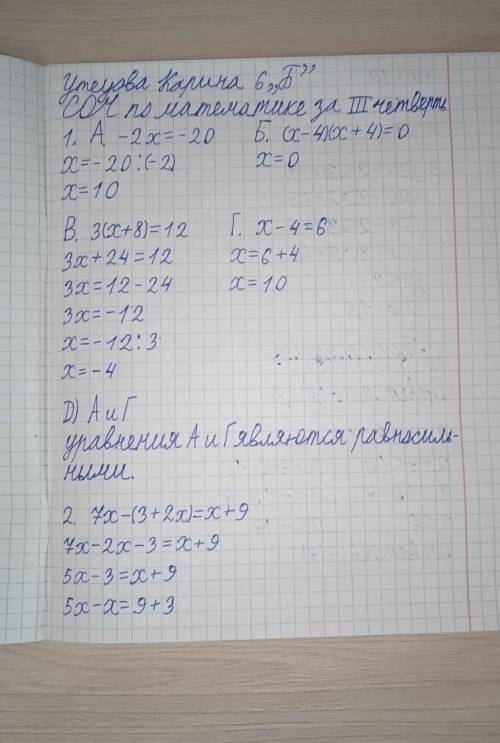 Утеуова Карина 6 „Б”
СОЧ по математике за III четверть
1. А. -2x=-20 Б. (x-4)(x+4)=0
x=-20:(-2) x=0
x=10
В. 3(x+8)=12 Г. x-4=6
3x+24=12 x=6+4
3x=12-24 x=10
3x=-12
x=-12:3
x=-4
D) А и Г
уравнения А и Г являются равносиль-
ными.
2. 7x-(3+2x)=x+9
7x-2x-3=x+9
5x-3=x+9
5x-x=9+3